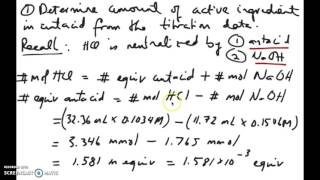 ① Determine amount of active ingredient
in antacid from the titration data.
Recall: HCl is neutralized by ① antacid
② NaOH
# mol HCl = # equiv antacid + # mol NaOH
# equiv antacid = # mol HCl - # mol NaOH
= (32.36 mL × 0.1034M) - (11.72 mL × 0.1506M)
= 3.346 mmol - 1.765 mmol
= 1.581 m equiv = 1.581 × 10⁻³ equiv
SCREENCAST-O-MATIC